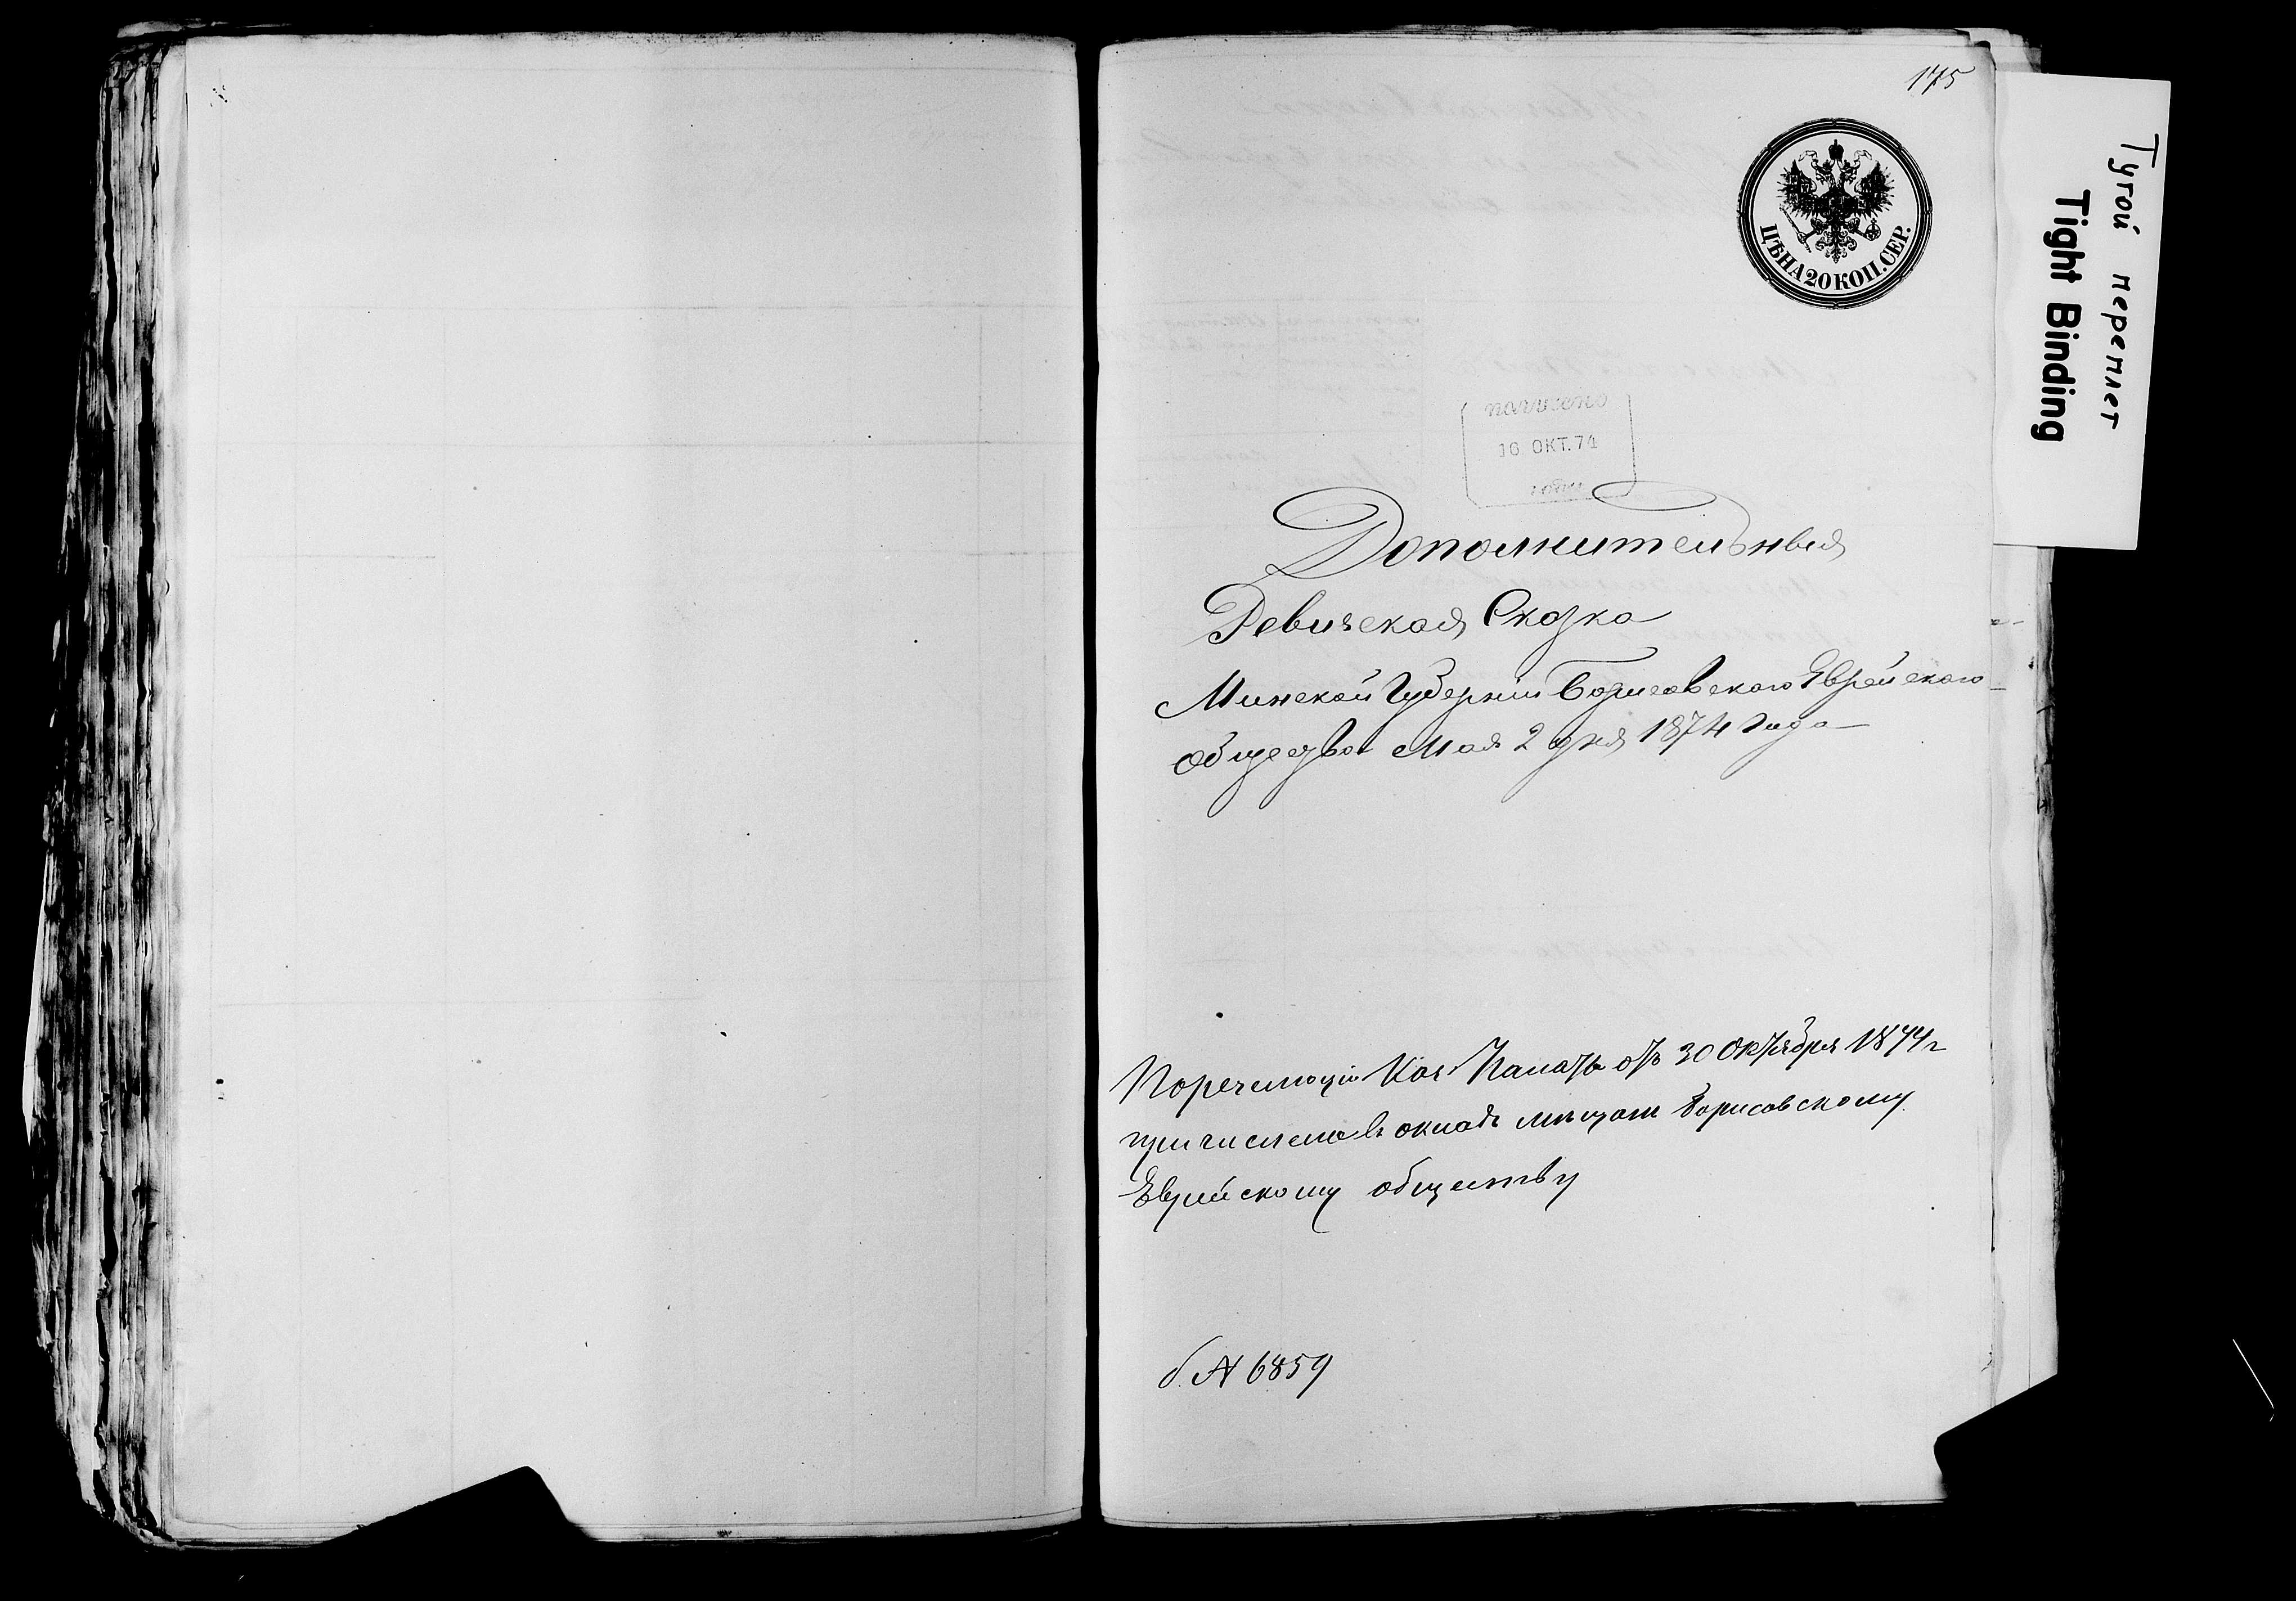 175
ЦѢНА 20 КОП. СЕР.
Тугой переплет
Tight Binding
получено
16 ОКТ. 74
Дополнительная
Ревизская Сказка
Минской Губерніи Борисовскаго Еврейскаго
общества Мая 2 дня 1874 года
Каз Палаты отъ 30 Октября 1874 г
причислена въ окладъ мѣщан Борисовскому
Еврейскому обществу
№ 6859